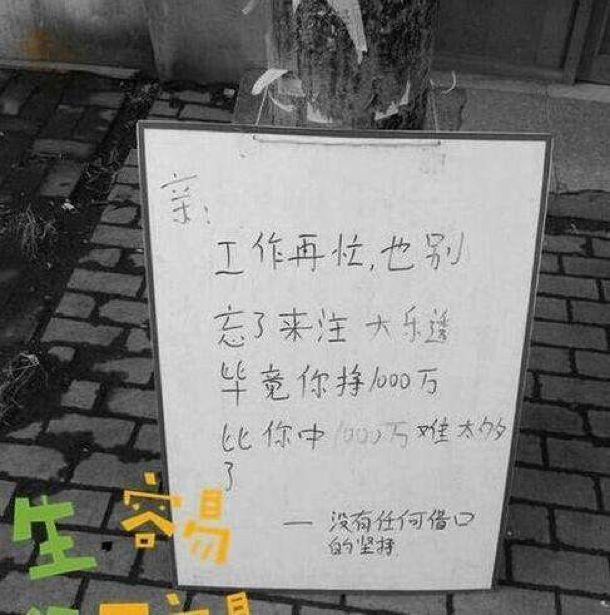 亲:
工作再忙,也别
忘了来注大乐透
毕竟你挣1000万
比你中1000万难太多
了
— 没有任何借口
的坚持
生
容易